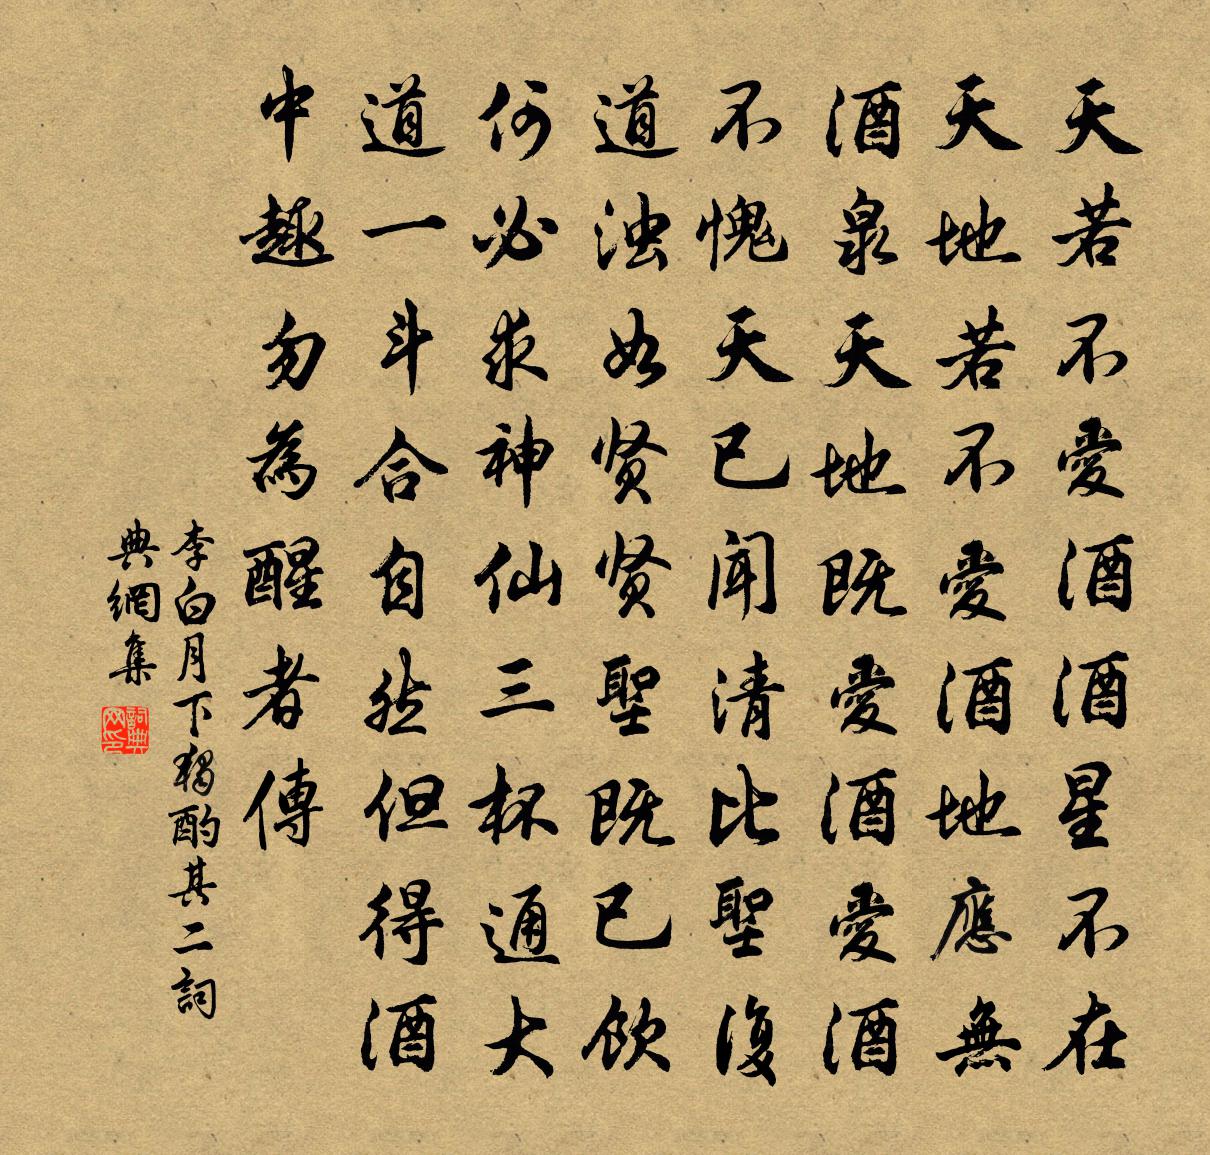 天若不愛酒酒星不在
天天地若不愛酒地應無
酒泉天地既愛酒愛酒
不愧天已闻清比聖復
道浊如贤贤聖既已饮
何必求神仙三杯通大
道一斗合自然但得酒
中趣勿為醒者傳
李白月下獨酌其二詞
典網集
詞典
网印